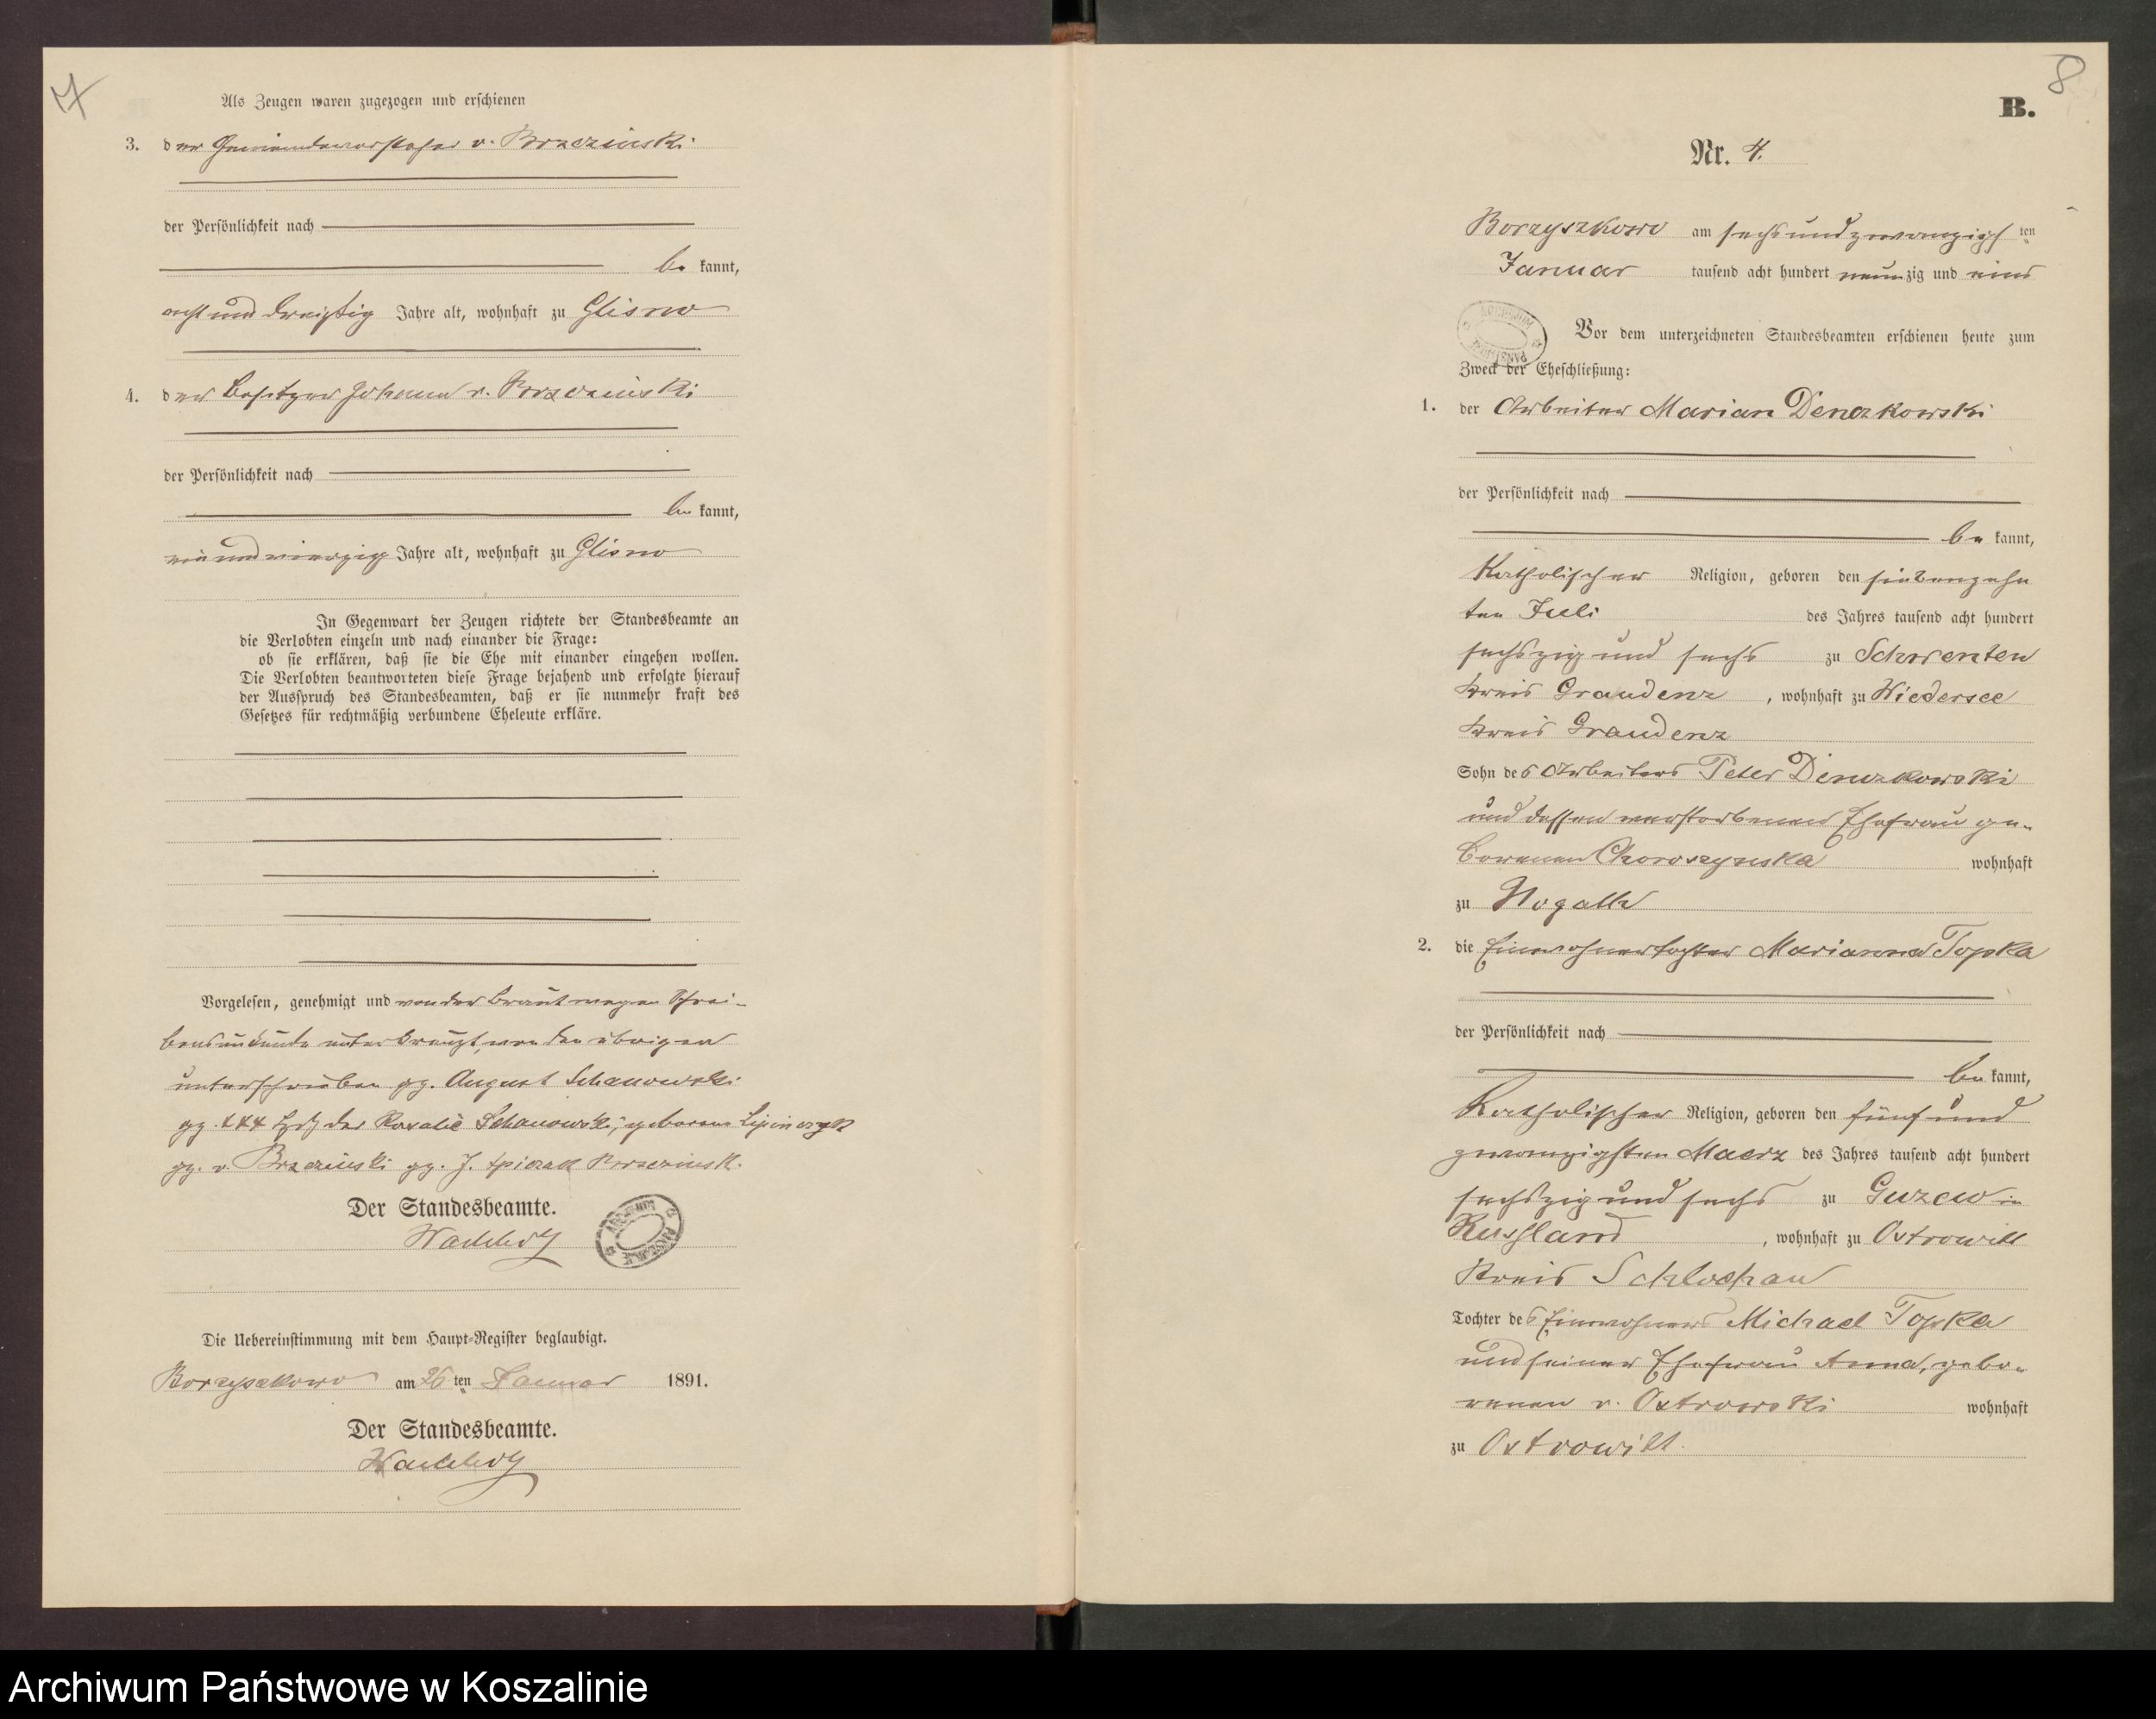 7
Als Zeugen waren zugezogen und erschienen
3. der Gemeindevorsteher v. Brzezinski
der Persönlichkeit nach
be kannt,
acht und dreißig Jahre alt, wohnhaft zu Glisno
4. der Besitzer Johann v.
der Persönlichkeit nach
be kannt,
ein und vierzig Jahre alt, wohnhaft zu Glisno
In Gegenwart der Zeugen richtete der Standesbeamte an
die Verlobten einzeln und nach einander die Frage:
ob sie erklären, daß sie die Ehe mit einander eingehen wollen.
Die Verlobten beantworteten diese Frage bejahend und erfolgte hierauf
der Ausspruch des Standesbeamten, daß er sie nunmehr kraft des
Gesetzes für rechtmäßig verbundene Eheleute erkläre.
Vorgelesen, genehmigt und von der Braut wegen Schrei-
bensunkunde unterkreuzt, von den übrigen
unterschrieben gez. August
gez. +++ Hdz der Rosalie geborene
gez. v. Brzezinski gez. J.
Der Standesbeamte.
Die Uebereinstimmung mit dem Haupt-Register beglaubigt.
Borzyszkowo am 26 ten Januar 1891.
Der Standesbeamte.
8
B.
Nr. 4.
Borzyszkowo am sechsundzwanzigs ten
Januar tausend acht hundert neun zig und eins
Vor dem unterzeichneten Standesbeamten erschienen heute zum
Zweck der Eheschließung:
1. der Arbeiter Marian Denczkowski
der Persönlichkeit nach
be kannt,
Katholischer Religion, geboren den siebenzehn
ten Juli des Jahres tausend acht hundert
sechszig und sechs zu Schwenten
Kreis Graudenz, wohnhaft zu Wiedersee
Kreis Graudenz
Sohn des Arbeiters Peter Denczkowski
und dessen verstorbenen Ehefrau ge-
borenen wohnhaft
zu
2. die Einwohnertochter Marianna Topka
der Persönlichkeit nach
be kannt,
Katholischer Religion, geboren den fünf und
zwanzigsten Maerz des Jahres tausend acht hundert
sechszig und sechs zu Guzew in
Russland, wohnhaft zu Ostrowitt
Kreis Schlochau
Tochter des Einwohners Michael Topka
und seiner Ehefrau Anna, gebo-
renen v. Ostrowski wohnhaft
zu Ostrowitt.
Archiwum Państwowe w Koszalinie